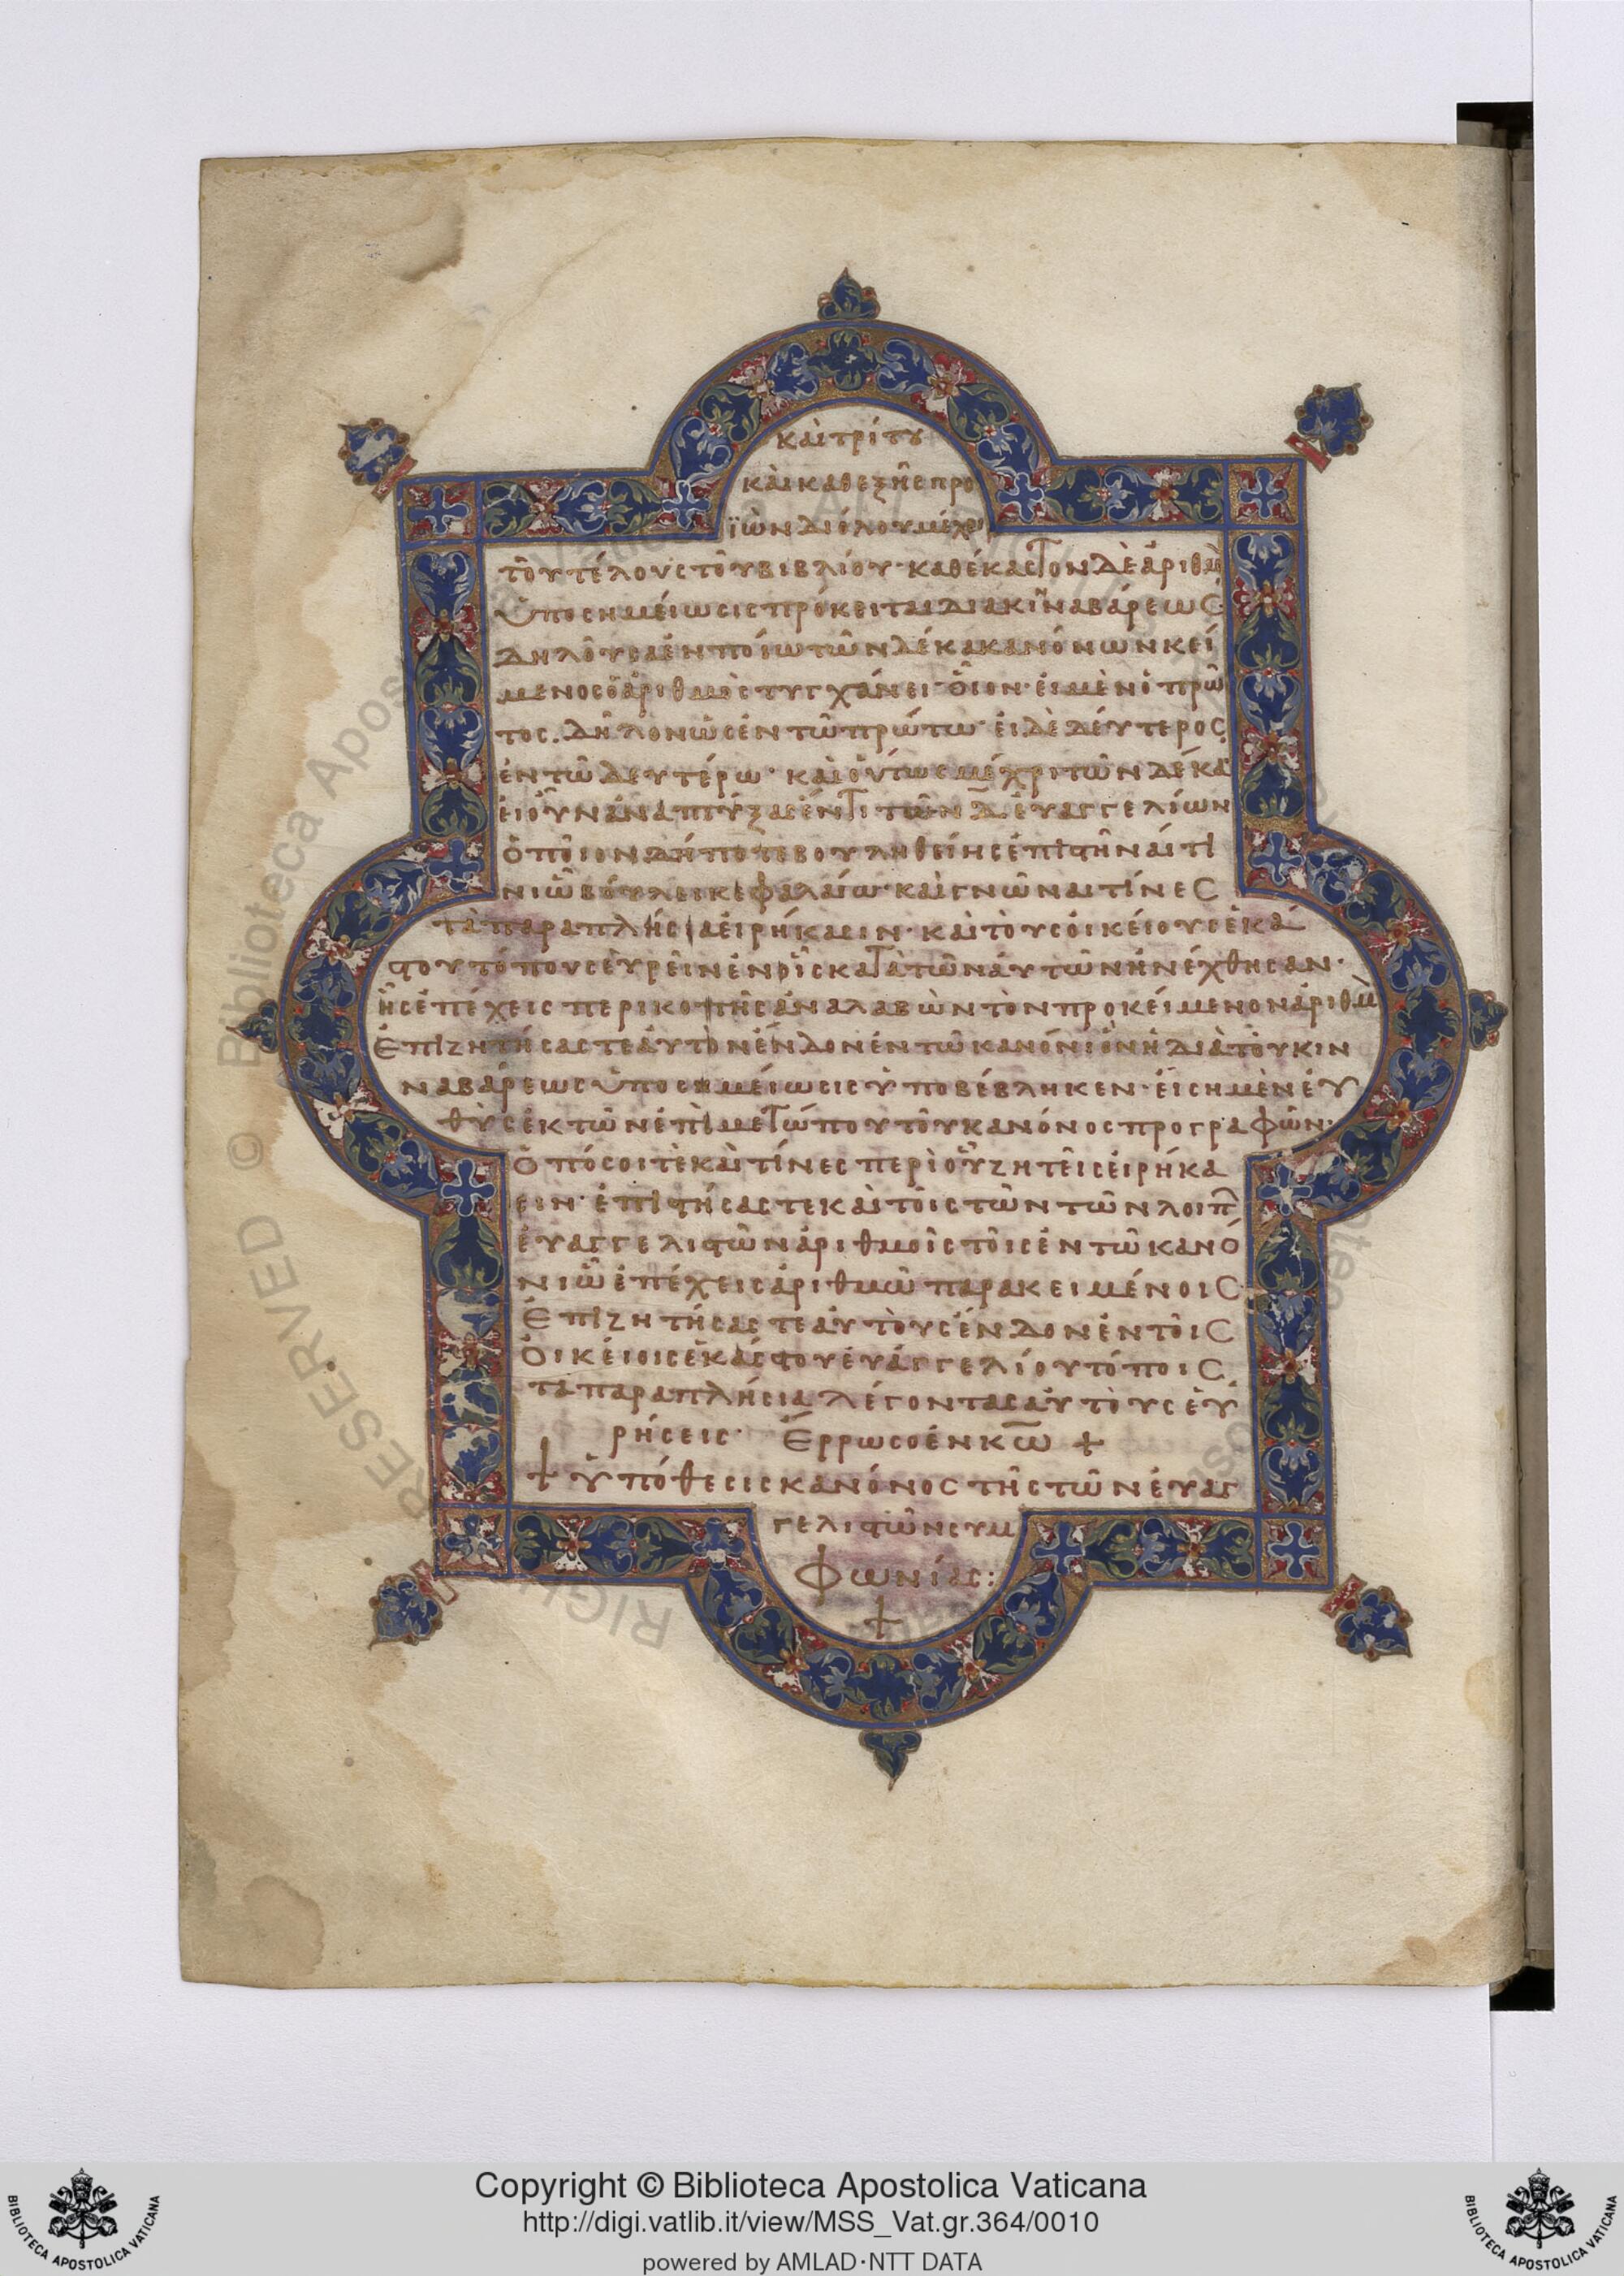 καὶ τρίτου
καὶ καθεξῆς προ
ϊὼν διόλου μέχρι
τοῦ τέλους τοῦ βιβλίου· καθέκαστον δὲ ἀριθμὸ
ὑποσημείωσις πρόκειται διὰ κινναβάρεως·
δηλοῦσα ἐν ποίω τῶν δέκα κανόνων κεί
μενος ὁ ἀριθμὸς τυγχάνει· οἷον· εἰ μὲν ὁ πρῶ
τος. δῆλον ὡς ἐν τῶ πρώτω· εἰ δὲ δεύτερος
ἐν τῶ δευτέρω· καὶ οὕτως μέχρι τῶν δέκα
εἰ οὖν ἀναπτύξας ἕν τι τῶν δ̅ εὐαγγελίων
ὁποῖον δήποτε βουληθείης ἐπιστῆναί τι
νι ὧ βούλει κεφαλαίω· καὶ γνῶναι τίνες
τὰ παραπλήσια εἰρήκασιν· καὶ τοὺς οἰκείους ἑκά
στου τόπους εὑρεῖν ἐν οἷς κατὰ τῶν αὐτῶν ἠνέχθησαν·
ἧς ἐπέχεις περικοπῆς ἀναλαβὼν τὸν προκείμενον ἀριθμ
ἐπιζητήσας τε αὐτὸν ἔνδον ἐν τῶ κανόνι ὃν ἡ διὰ τοῦ κιν
ναβάρεως ὑποσημείωσις ὑποβέβληκεν· εἴση μὲν εὐ
θὺς ἐκ τῶν ἐπὶ μετώπου τοῦ κανόνος προγραφῶν·
ὁπόσοι τὲ καὶ τίνες περὶ οὗ ζητεῖς εἰρήκα
σιν· ἐπιστήσας τε καὶ τοῖς τῶν τῶν λοιπ
εὐαγγελιστῶν ἀριθμοῖς τοῖς ἐν τῶ κανό
νι ὧ ἐπέχεις ἀριθμῶ παρακειμένοις·
ἐπιζητήσας τε αὐτοὺς ἔνδον ἐν τοῖς
οἰκείοις ἑκάστου εὐαγγελίου τόποις
τὰ παραπλήσια λέγοντας αὐτοὺς εὑ
ρήσεις· ἔρρωσο ἐν κ̅ω̅ +
+ ὑπόθεσις κανόνος τῆς τῶν εὐαγ
γελιστῶν συμ
φωνίας:
+
Copyright © Biblioteca Apostolica Vaticana
http://digi.vatlib.it/view/MSS_Vat.gr.364/0010
powered by AMLAD·NTT DATA
BIBLIOTECA APOSTOLICA VATICANA
BIBLIOTECA APOSTOLICA VATICANA